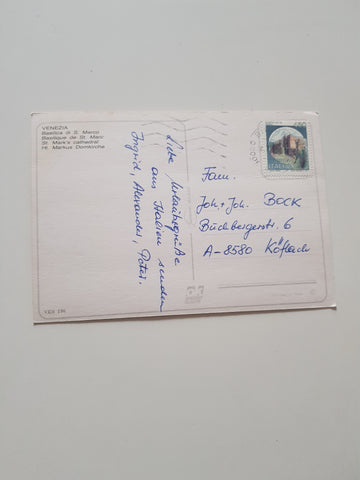 VENEZIA
Basilica di S. Marco
Basilique de St. Marc
St. Mark's cathedral
Hl. Markus Domkirche
Liebe Urlaubsgrüße
aus Italien senden
Ingrid, Alexander, Peter.
450
ITALIA
Fam.
Joh + Joh. BOCK
Büchbergerstr. 6
A-8580 Köflach